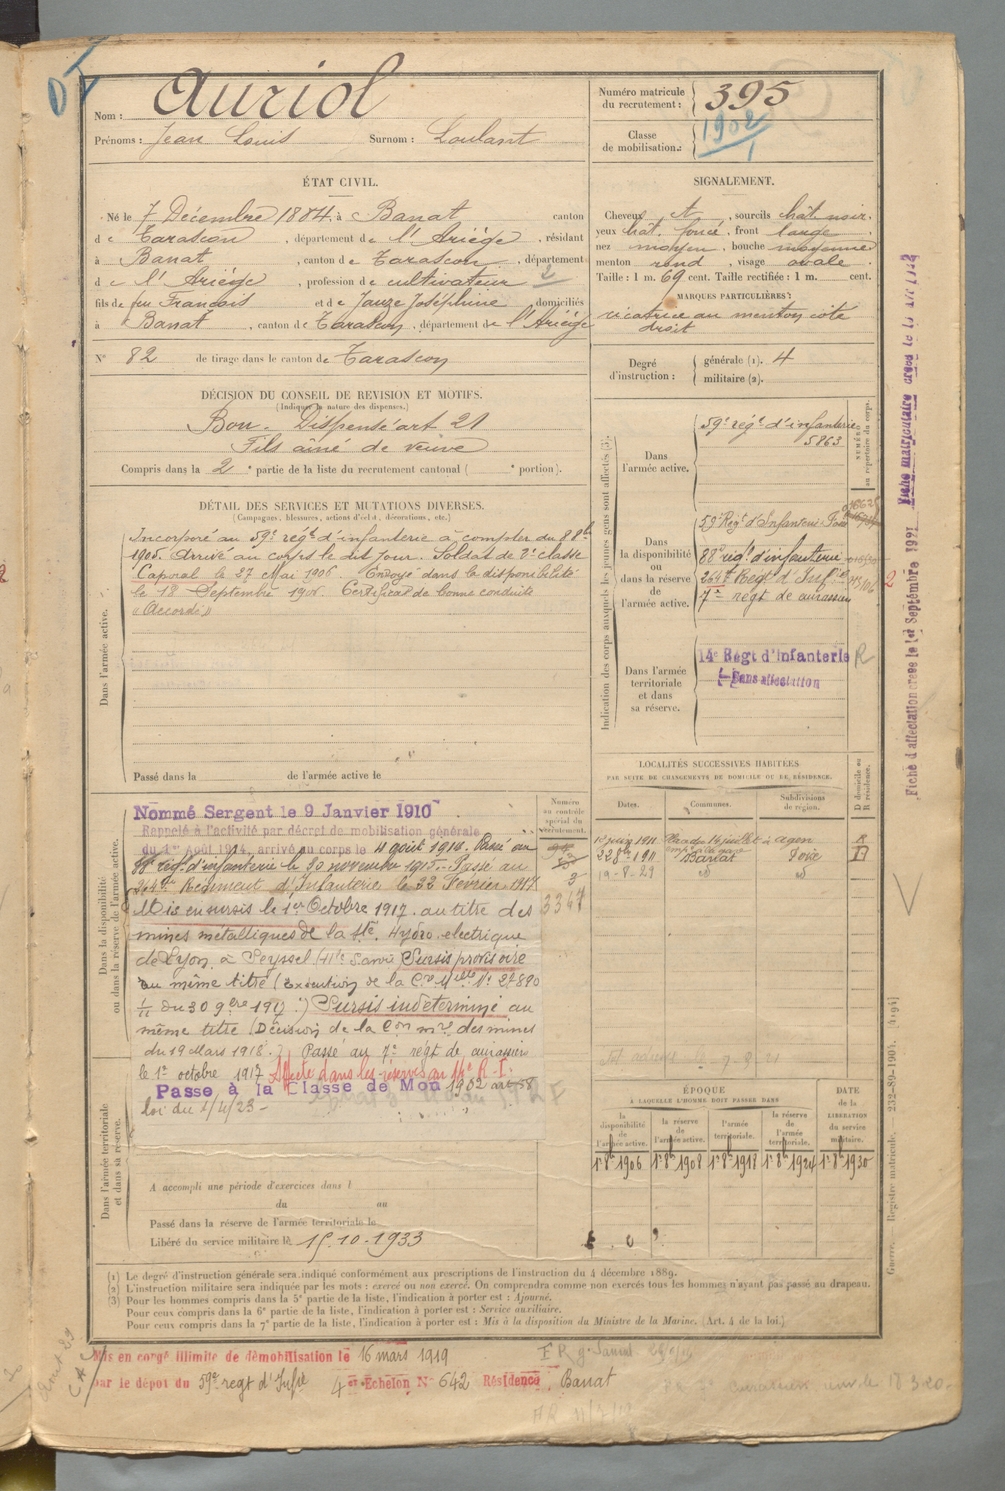 Nom : Auriol
Prénoms : Jean Louis Surnom : Loulant
Numéro matricule du recrutement : 395
Classe de mobilisation : 1902
ÉTAT CIVIL.
Né le 7 Décembre 1884, à Banat canton
de Tarascon, département de l'Ariège, résidant
à Banat, canton de Tarascon, département
de l'Ariège, profession de cultivateur 2
fils de feu François et de Jauze Joséphine domiciliés
à Banat, canton de Tarascon, département de l'Ariège
N° 82 de tirage dans le canton de Tarascon
SIGNALEMENT.
Cheveux et, sourcils chât noir.
yeux chât. foncé, front large
nez moyen, bouche moyenne
menton rond, visage ovale.
Taille : 1 m. 69 cent. Taille rectifiée : 1 m. cent.
MARQUES PARTICULIÈRES :
cicatrice au menton côté
droit
Degré d'instruction : générale (1). 4
militaire (2).
DÉCISION DU CONSEIL DE REVISION ET MOTIFS.
(Indiquer la nature des dispenses.)
Bon. Dispensé art 21
Fils aîné de veuve
Compris dans la 2e partie de la liste du recrutement cantonal ( e portion).
DÉTAIL DES SERVICES ET MUTATIONS DIVERSES.
(Campagnes, blessures, actions d'éclat, décorations, etc.)
Dans l'armée active.
Incorporé au 59e régt d'infanterie à compter du 8 8bre
1905. Arrivé au corps le dit jour. Soldat de 2e classe
Caporal le 27 Mai 1906. Envoyé dans la disponibilité
le 18 Septembre 1906. Certificat de bonne conduite
"Accordé"
Passé dans la de l'armée active le
Indication des corps auxquels les jeunes gens sont affectés (3).
NUMÉRO au répertoire du corps.
Dans l'armée active.
59e régt d'infanterie
5863
Dans la disponibilité ou dans la réserve de l'armée active.
59 Régt d'Infanterie Foix
88e régt d'infanterie
264e Régt d'Infie
7e régt de cuirassiers
Dans l'armée territoriale et dans sa réserve.
14e Régt d'Infanterie R
Sans affectation
Dans la disponibilité ou dans la réserve de l'armée active.
Nommé Sergent le 9 Janvier 1910
Rappelé à l'activité par décret de mobilisation générale
du 1er Août 1914, arrivé au corps le 4 août 1914. Passé au
88e régt d'infanterie le 30 novembre 1915. Passé au
264e Régiment d'Infanterie le 22 Février 1917
Mis en sursis le 1er Octobre 1917 au titre des
mines métalliques de la Sté Hydro-electrique
de Lyon à Seyssel Sursis provisoire
au même titre (Execution de la Cre Mlle N° 27880
1/11 du 30 9bre 1917.) Sursis indéterminé au
même titre (Décision de la Con mre des mines
du 19 Mars 1918.) Passé au 7e régt de cuirassiers
le 1er octobre 1917 Affecté dans les réserves au 14e R.I.
Passé à la Classe de Mob 1902 art 58
loi du 1/4/23
Numéro au contrôle spécial du recrutement.
3
3347
LOCALITÉS SUCCESSIVES HABITÉES
PAR SUITE DE CHANGEMENTS DE DOMICILE OU DE RÉSIDENCE.
Dates. Communes. Subdivisions de région. D domicile ou R résidence.
1er juin 1911 Place du 14 juillet à agen R
Banat Foix D
19-8-29 id id
ÉPOQUE
À LAQUELLE L'HOMME DOIT PASSER DANS
la disponibilité de l'armée active. la réserve de l'armée active. l'armée territoriale. la réserve de l'armée territoriale. DATE de la LIBÉRATION du service militaire.
1er 8bre 1906 1er 8bre 1908 1er 8bre 1918 1er 8bre 1924 1er 8bre 1930
Dans l'armée territoriale et dans sa réserve.
A accompli une période d'exercices dans l
du au
Passé dans la réserve de l'armée territoriale le
Libéré du service militaire le 15.10.1933
(1) Le degré d'instruction générale sera indiqué conformément aux prescriptions de l'instruction du 4 décembre 1889.
(2) L'instruction militaire sera indiquée par les mots : exercé ou non exercé. On comprendra comme non exercés tous les hommes n'ayant pas passé au drapeau.
(3) Pour les hommes compris dans la 5e partie de la liste, l'indication à porter est : Ajourné.
Pour ceux compris dans la 6e partie de la liste, l'indication à porter est : Service auxiliaire.
Pour ceux compris dans la 7e partie de la liste, l'indication à porter est : Mis à la disposition du Ministre de la Marine. (Art. 4 de la loi.)
Mis en congé illimité de démobilisation le 16 mars 1919
par le dépôt du 59e regt d'Infie 4e Échelon N° 642 Résidence Banat
Fiche d'affectation créée le 1er Septembre 1921
Fiche matriculaire créée le
Guerre. Registre matricule. — 232-89-1904. [4194]